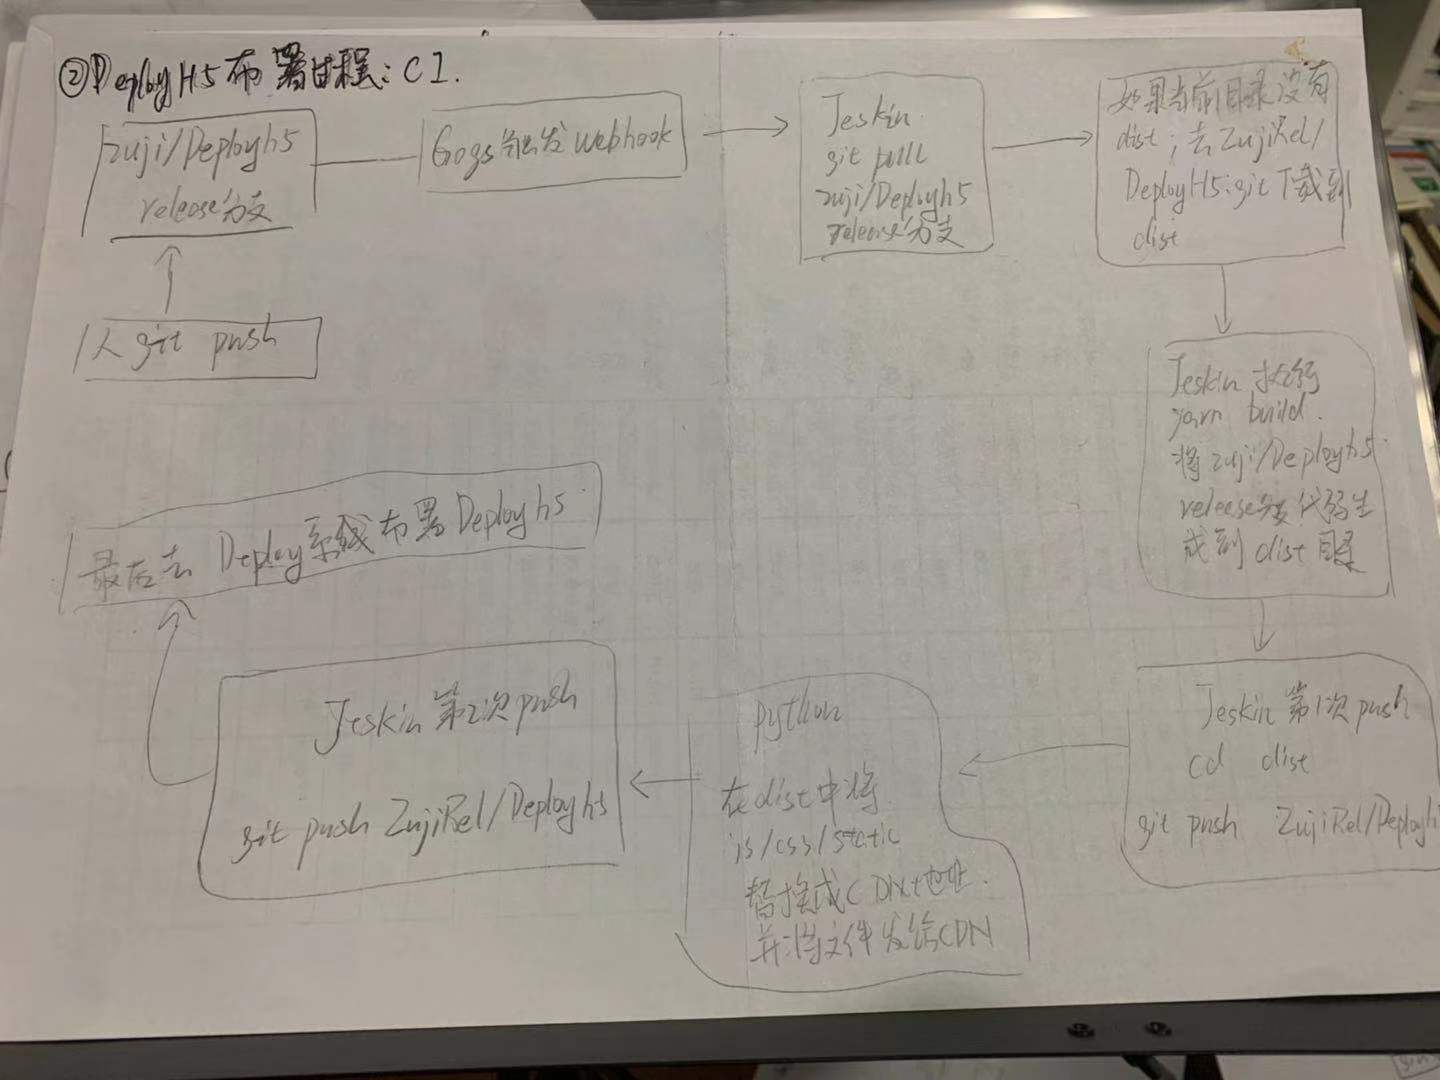 ②DeployH5布署过程:CI.
zuji/Deployh5
release分支
人 git push
Gogs触发webhook
Jeskin
git pull
zuji/Deployh5
release分支
如果当前目录没有
dist;去ZujiRel/
DeployH5.git下载到
dist
Jeskin 执行
yarn build.
将zuji/Deployh5
release分支代码生
成到 dist 目录
Jeskin 第1次push
cd dist
git push ZujiRel/Deployh
python
在dist中将
js/css/static
替换成CDN地址.
并将文件发给CDN
Jeskin 第2次push
git push ZujiRel/Deployh5
最后去 Deploy系统布署Deployh5